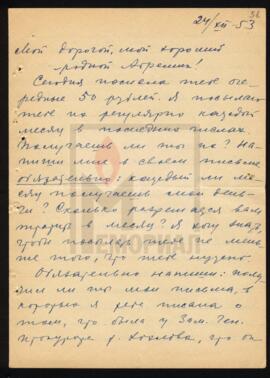 36
24/XII-53
Мой дорогой, мой хороший
родной Абрашка!
Сегодня послала тебе оче-
редные 50 рублей. Я посылаю
тебе их регулярно каждый
месяц в последних числах.
Получаешь ли ты их? На-
пиши мне в своем письме
обязательно: каждый ли ме-
сяц получаешь мои день-
ги? Сколько разрешается вам
тратить в месяц? Я хочу знать,
чтобы посылать тебе не мень-
ше того, что тебе нужно.
Обязательно напиши: полу-
чил ли ты мои письма, в
которых я тебе писала о
том, что была у Зам. Ген.
прокурора т. Хохлова, что он
МЕМОРИАЛ